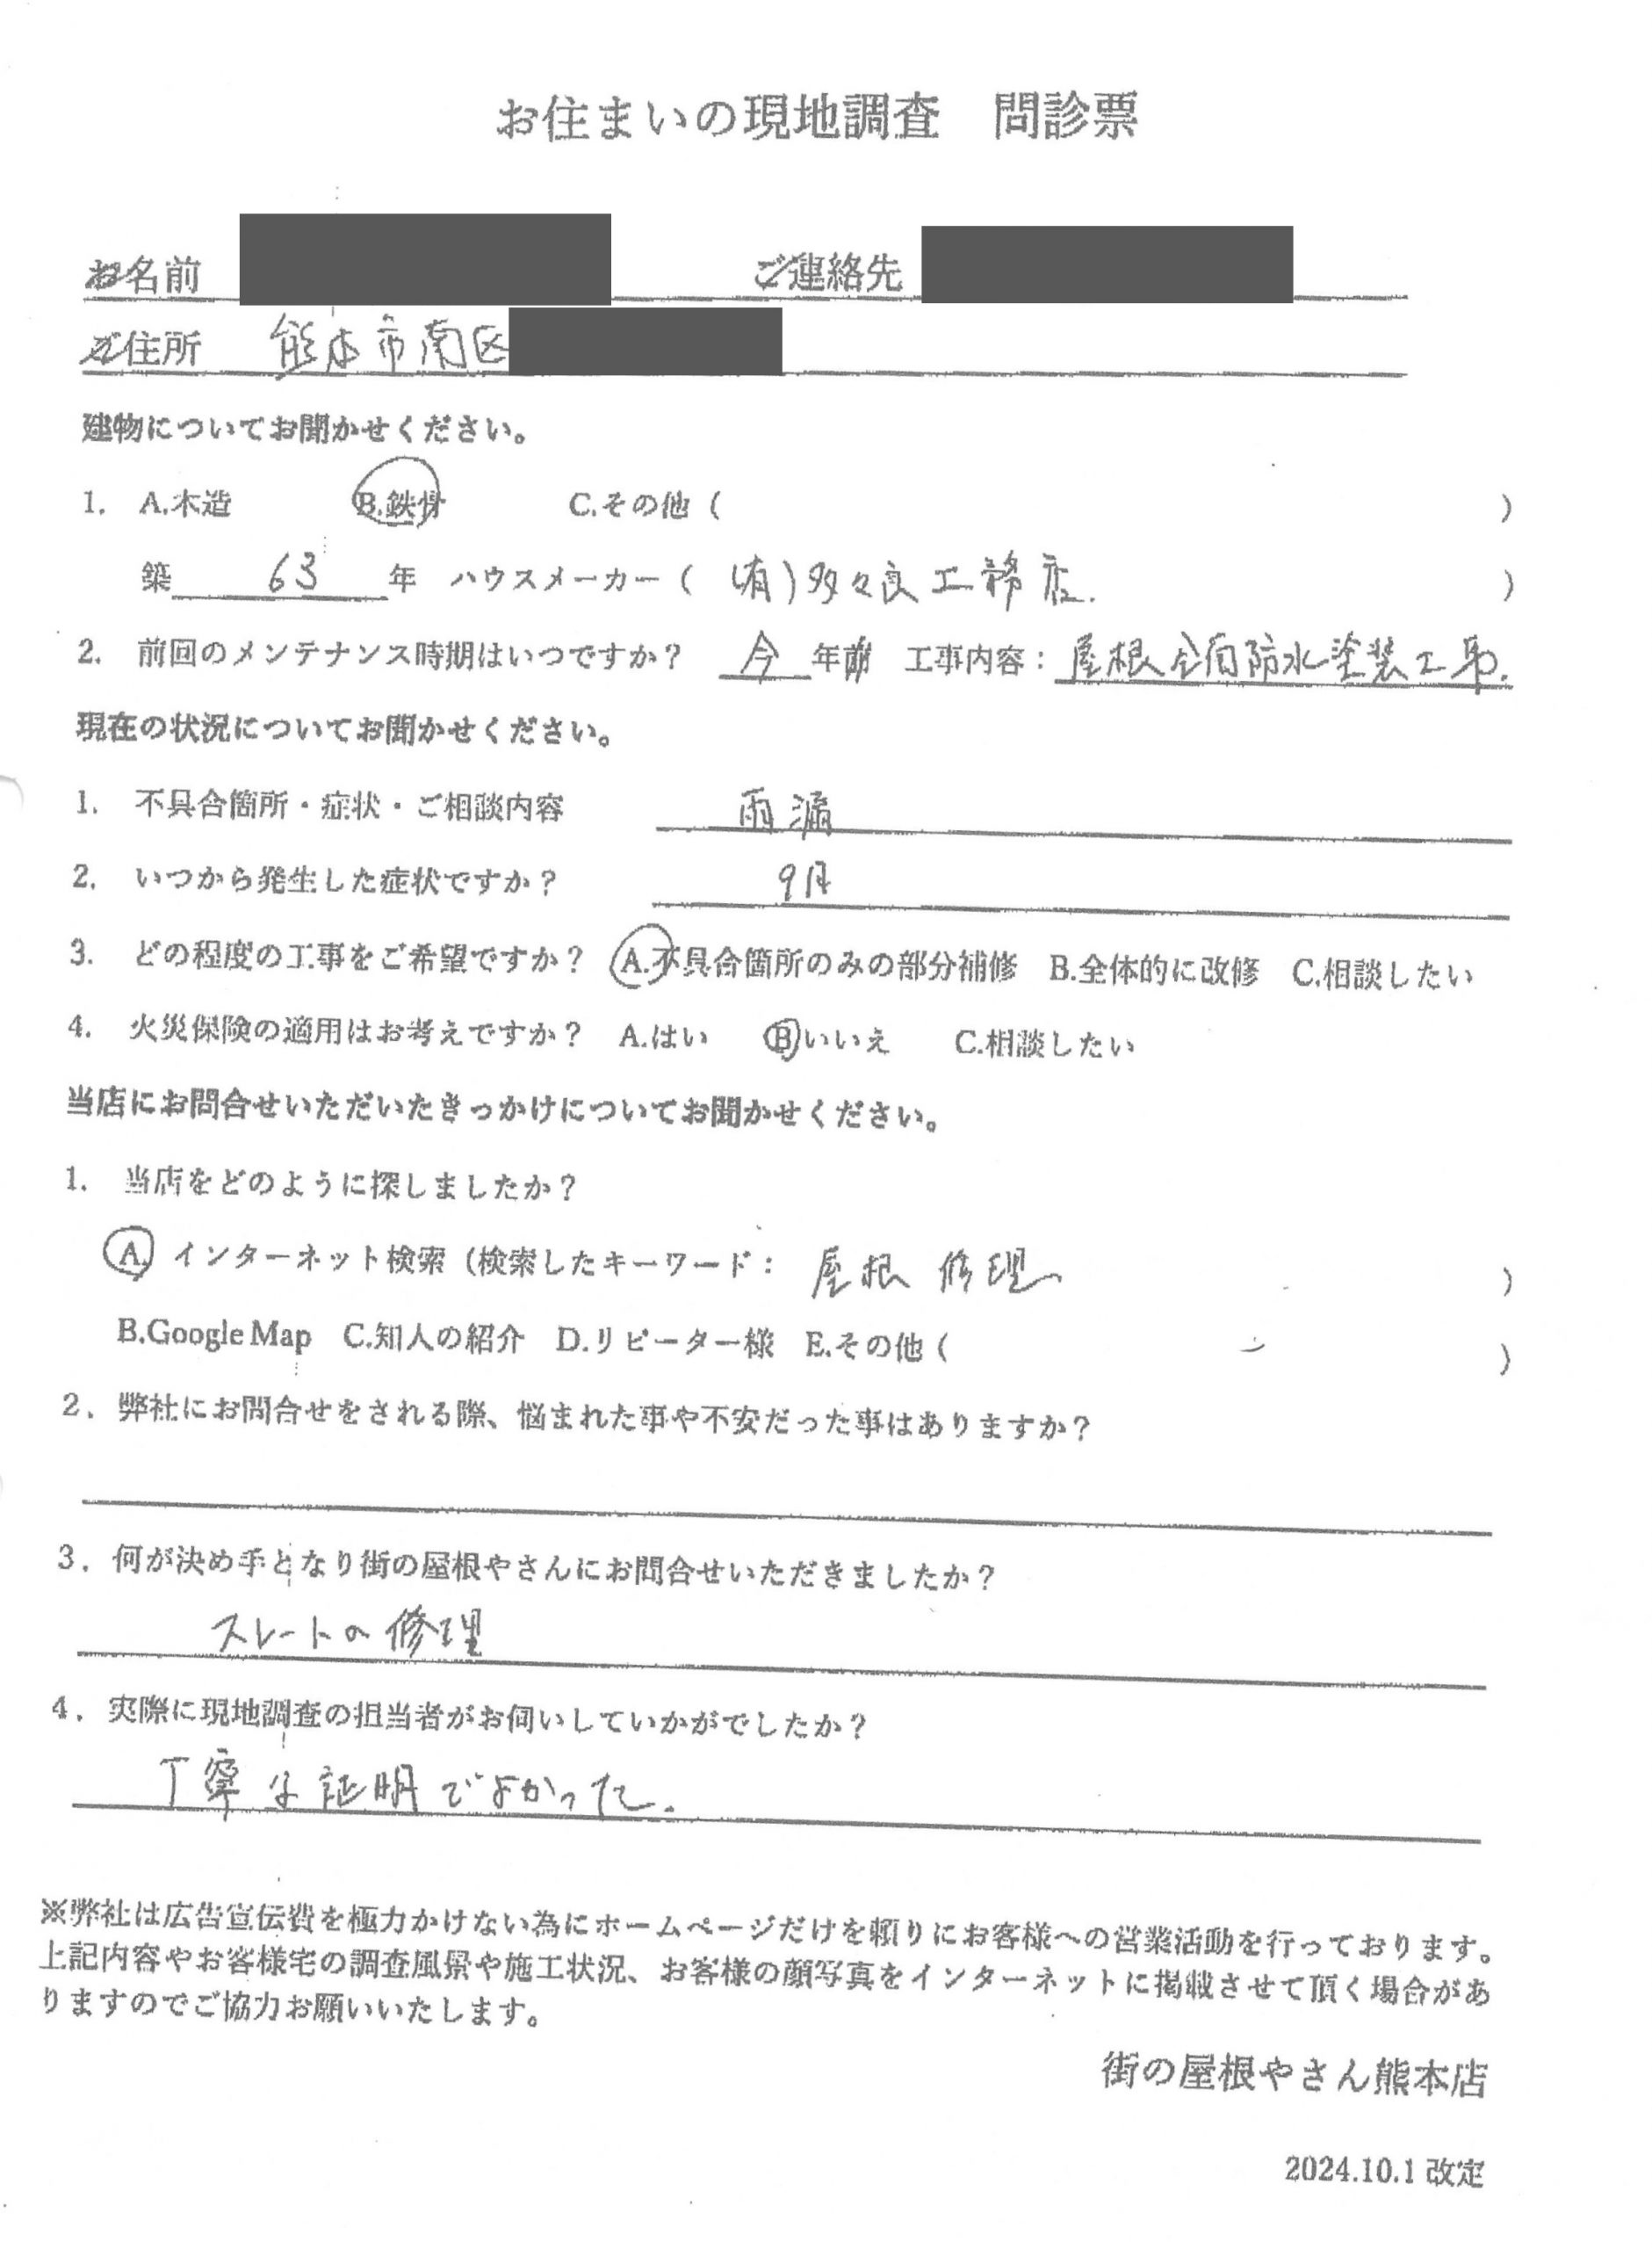 お住まいの現地調査　問診票
お名前　ご連絡先
ご住所　熊本市南区
建物についてお聞かせください。
1. A.木造　B.鉄骨　C.その他（　）
築 63 年　ハウスメーカー（ (有)多々良工務店. ）
2. 前回のメンテナンス時期はいつですか？ 今 年前　工事内容：屋根全面防水塗装工事.
現在の状況についてお聞かせください。
1. 不具合箇所・症状・ご相談内容　雨漏
2. いつから発生した症状ですか？　9月
3. どの程度の工事をご希望ですか？ A.不具合箇所のみの部分補修　B.全体的に改修　C.相談したい
4. 火災保険の適用はお考えですか？ A.はい　B いいえ　C.相談したい
当店にお問合せいただいたきっかけについてお聞かせください。
1. 当店をどのように探しましたか？
A. インターネット検索（検索したキーワード：屋根 修理　）
B.Google Map　C.知人の紹介　D.リピーター様　E.その他（　）
2. 弊社にお問合せをされる際、悩まれた事や不安だった事はありますか？
3. 何が決め手となり街の屋根やさんにお問合せいただきましたか？
スレートの修理
4. 実際に現地調査の担当者がお伺いしていかがでしたか？
丁寧な証明でよかった.
※弊社は広告宣伝費を極力かけない為にホームページだけを頼りにお客様への営業活動を行っております。
上記内容やお客様宅の調査風景や施工状況、お客様の顔写真をインターネットに掲載させて頂く場合があ
りますのでご協力お願いいたします。
街の屋根やさん熊本店
2024.10.1 改定